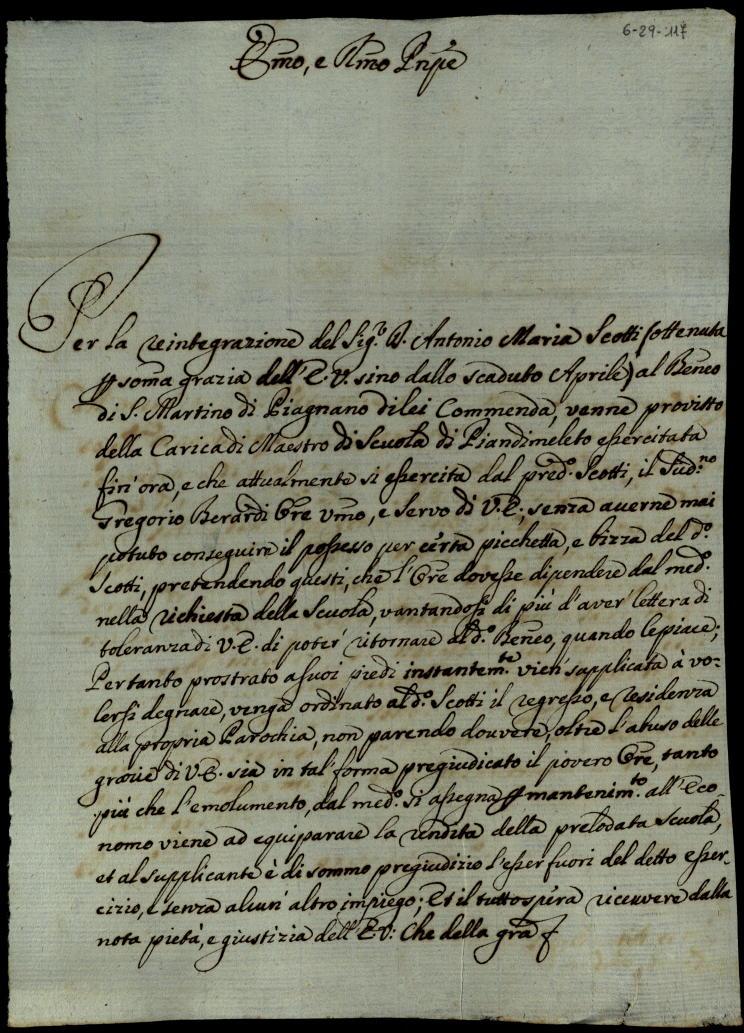 6-29-117
Emo, e Rmo Pnpe
Per la reintegrazione del Sig.r D. Antonio Maria Scotti (ottenuta
p soma grazia dell'E.V. sino dallo scaduto Aprile) al Beneo
di S. Martino di Piagnano di lei Commenda, venne provisto
della Carica di Maestro di Scuola di Piandimeleto essercitata
fin'ora, e che attualmente si essercita dal pred.o Scotti, il Sud.no
Gregorio Berardi Ore Vmo, e Servo di V.E., senza averne mai
potuto conseguire il possesso per certa picchetta, e bizza del d.o
Scotti, pretendendo questi, che l'Ore dovesse dipendere dal med.o
nella richiesta della Scuola, vantandosi di più d'aver' lettera di
toleranza di V.E. di poter' ritornare al d.o Beneo, quando le piace;
Pertanto prostrato a suoi piedi instantem.te vien' supplicata à vo-
lersi degnare, venga ordinato al d.o Scotti il regresso, e residenza
alla propria Parochia, non parendo dovere, oltre l'abuso delle
grazie di V.E. sia in tal' forma pregiudicato il povero Ore, tanto
più che l'emolumento, dal med.o si assegna p mantenim.to all'Eco-
nomo viene ad equiparare la rendita della prelodata Scuola,
et al supplicante è di sommo pregiudizio l'esser fuori del detto esser-
cizio, e senza alcun' altro impiego; Et il tutto spera ricevere dalla
nota pietà, e giustizia dell'E.V: Che della gra